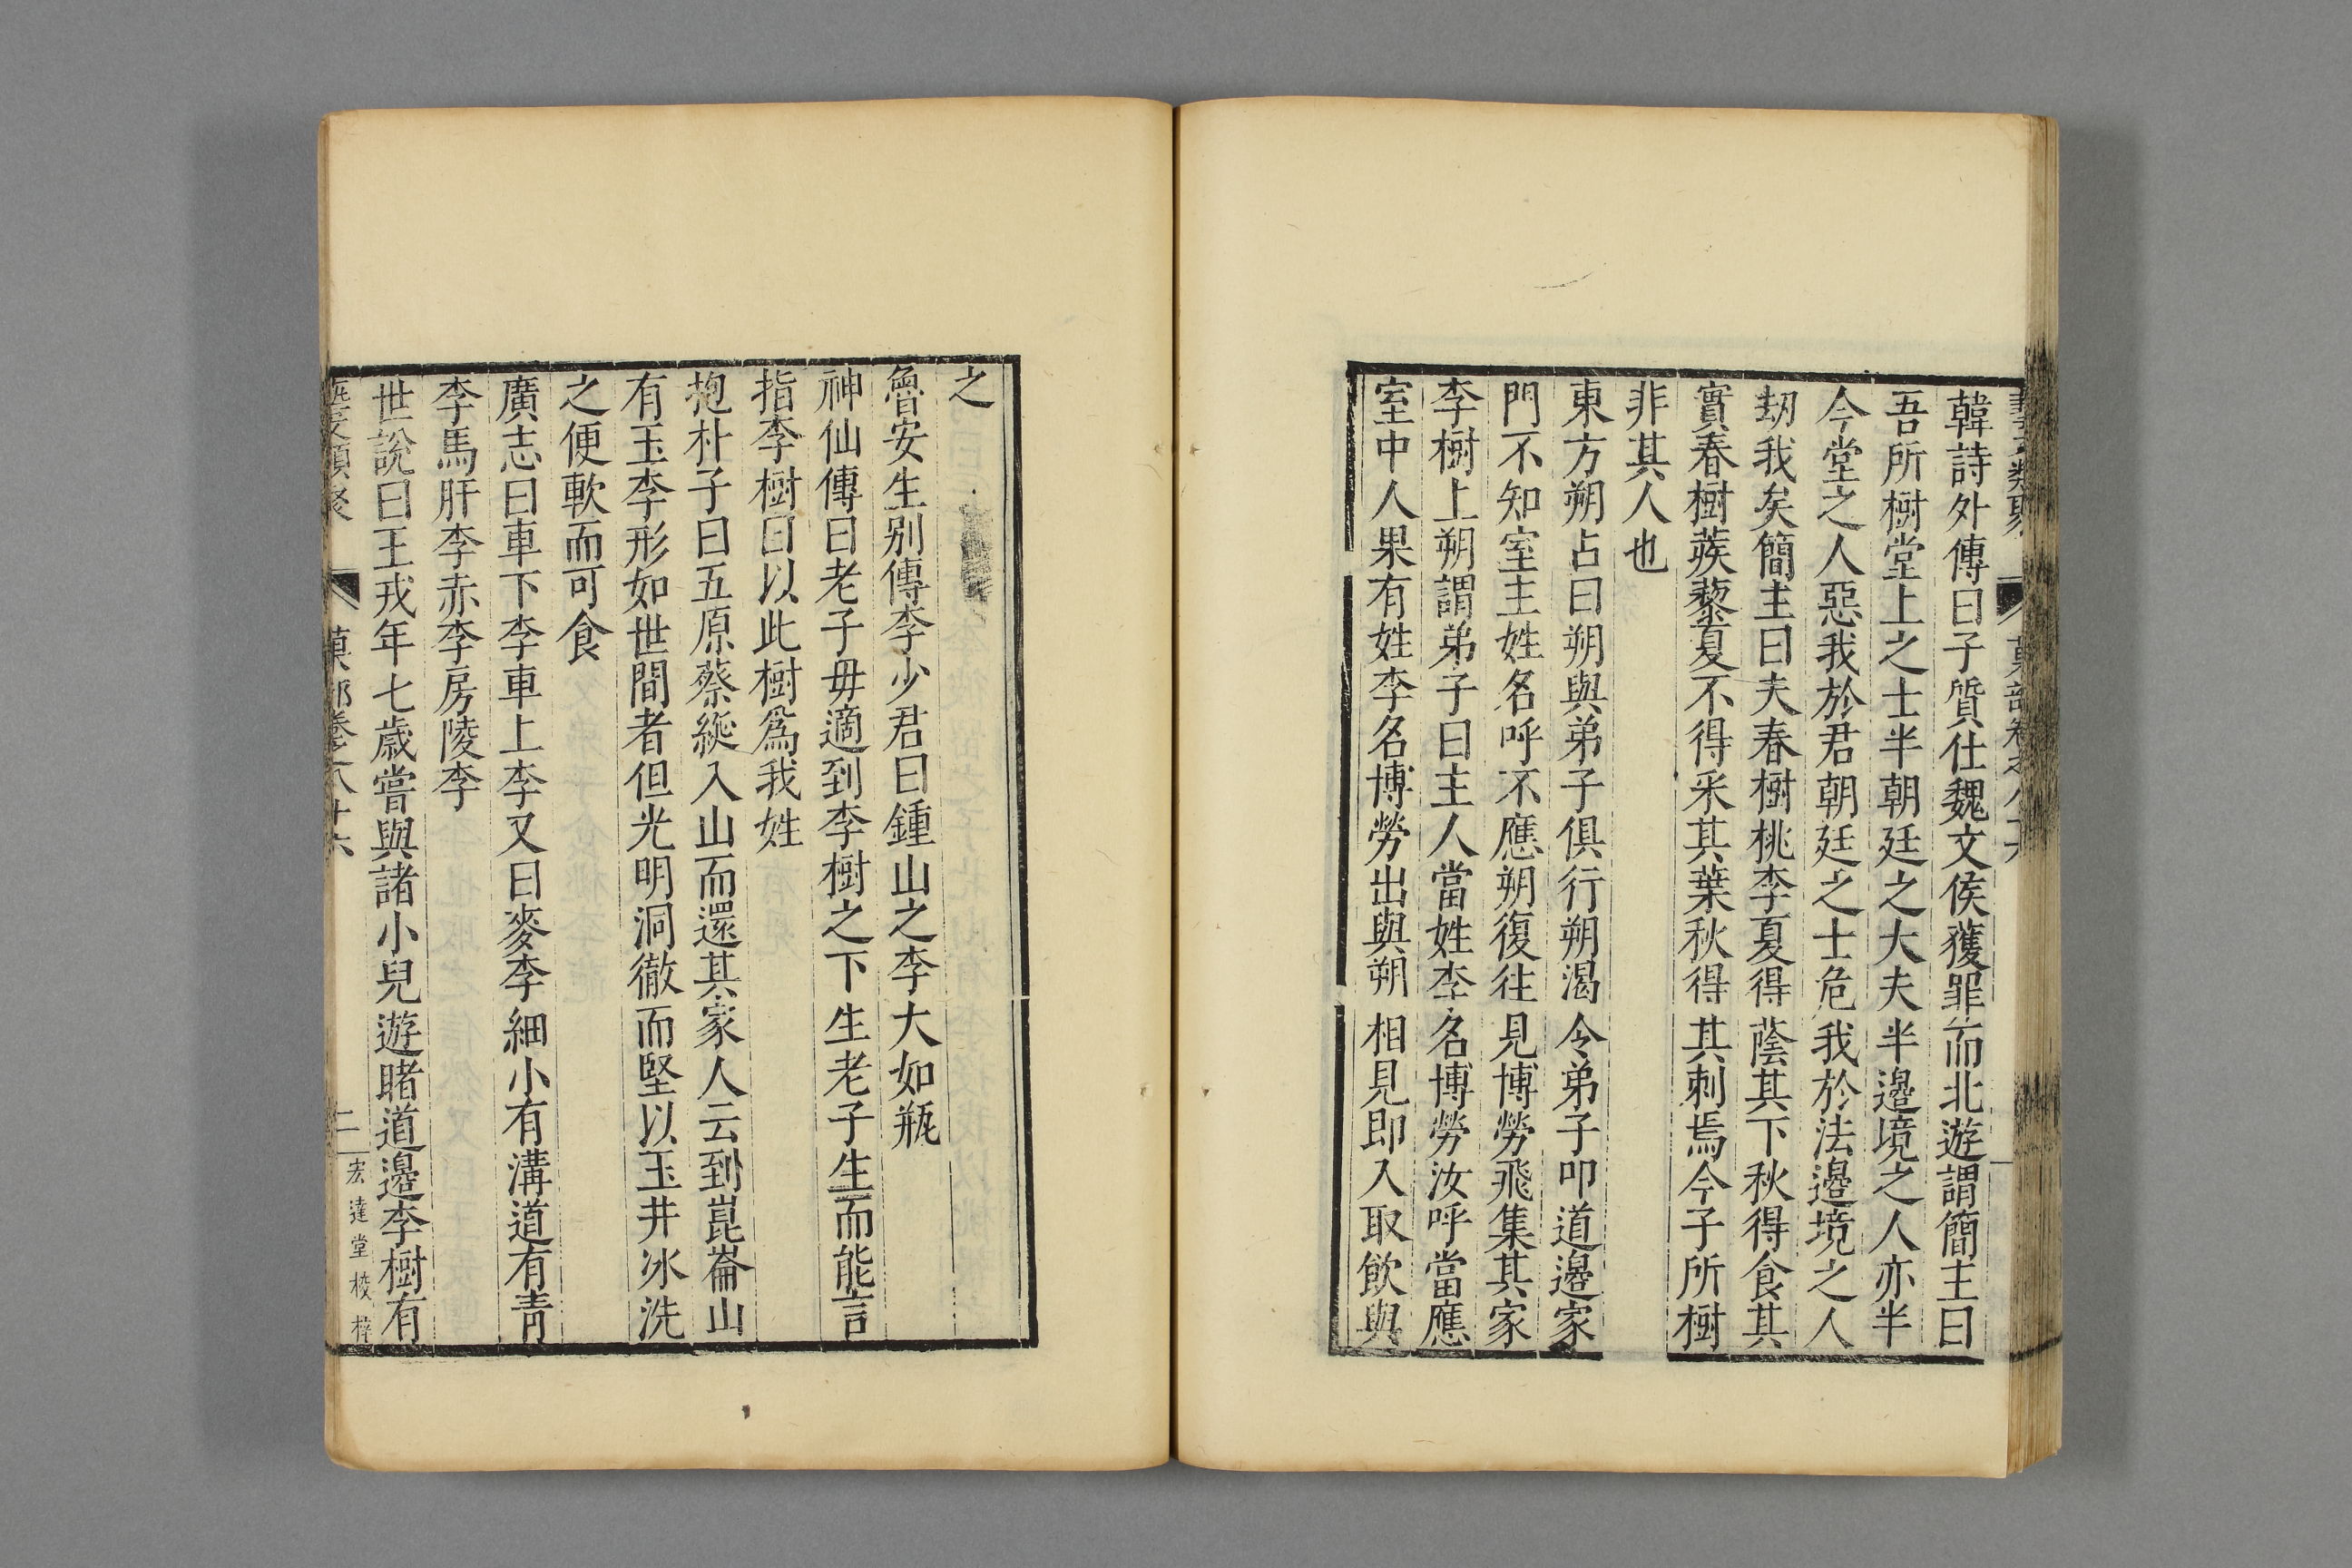 韓詩外傳曰子質仕魏文侯獲罪而北遊謂簡主曰
吾所樹堂上之士半朝廷之大夫半邊境之人亦半
今堂之人惡我於君朝廷之士危我於法邊境之人
刼我矣簡主曰夫春樹桃李夏得蔭其下秋得食其
實春樹蒺藜夏不得采其葉秋得其刺焉今子所樹
非其人也
東方朔占曰朔與弟子俱行朔渴令弟子叩道邊家
門不知室主姓名呼不應朔復往見博勞飛集其家
李樹上朔謂弟子曰主人當姓李名博勞汝呼當應
室中人果有姓李名博勞出與朔相見即入取飲與
之
魯安生别傳李少君曰鍾山之李大如瓶
神仙傳曰老子毋適到李樹之下生老子生而能言
指李樹曰以此樹爲我姓
抱朴子曰五原蔡綖入山而還其家人云到崑崙山
有玉李形如世間者但光明洞徹而堅以玉井氷洗
之便軟而可食
廣志曰車下李車上李又曰麥李細小有溝道有青
李馬肝李赤李房陵李
世說曰王戎年七歲嘗與諸小兒遊睹道邊李樹有
菓部卷之八十六
二
宏達堂校梓